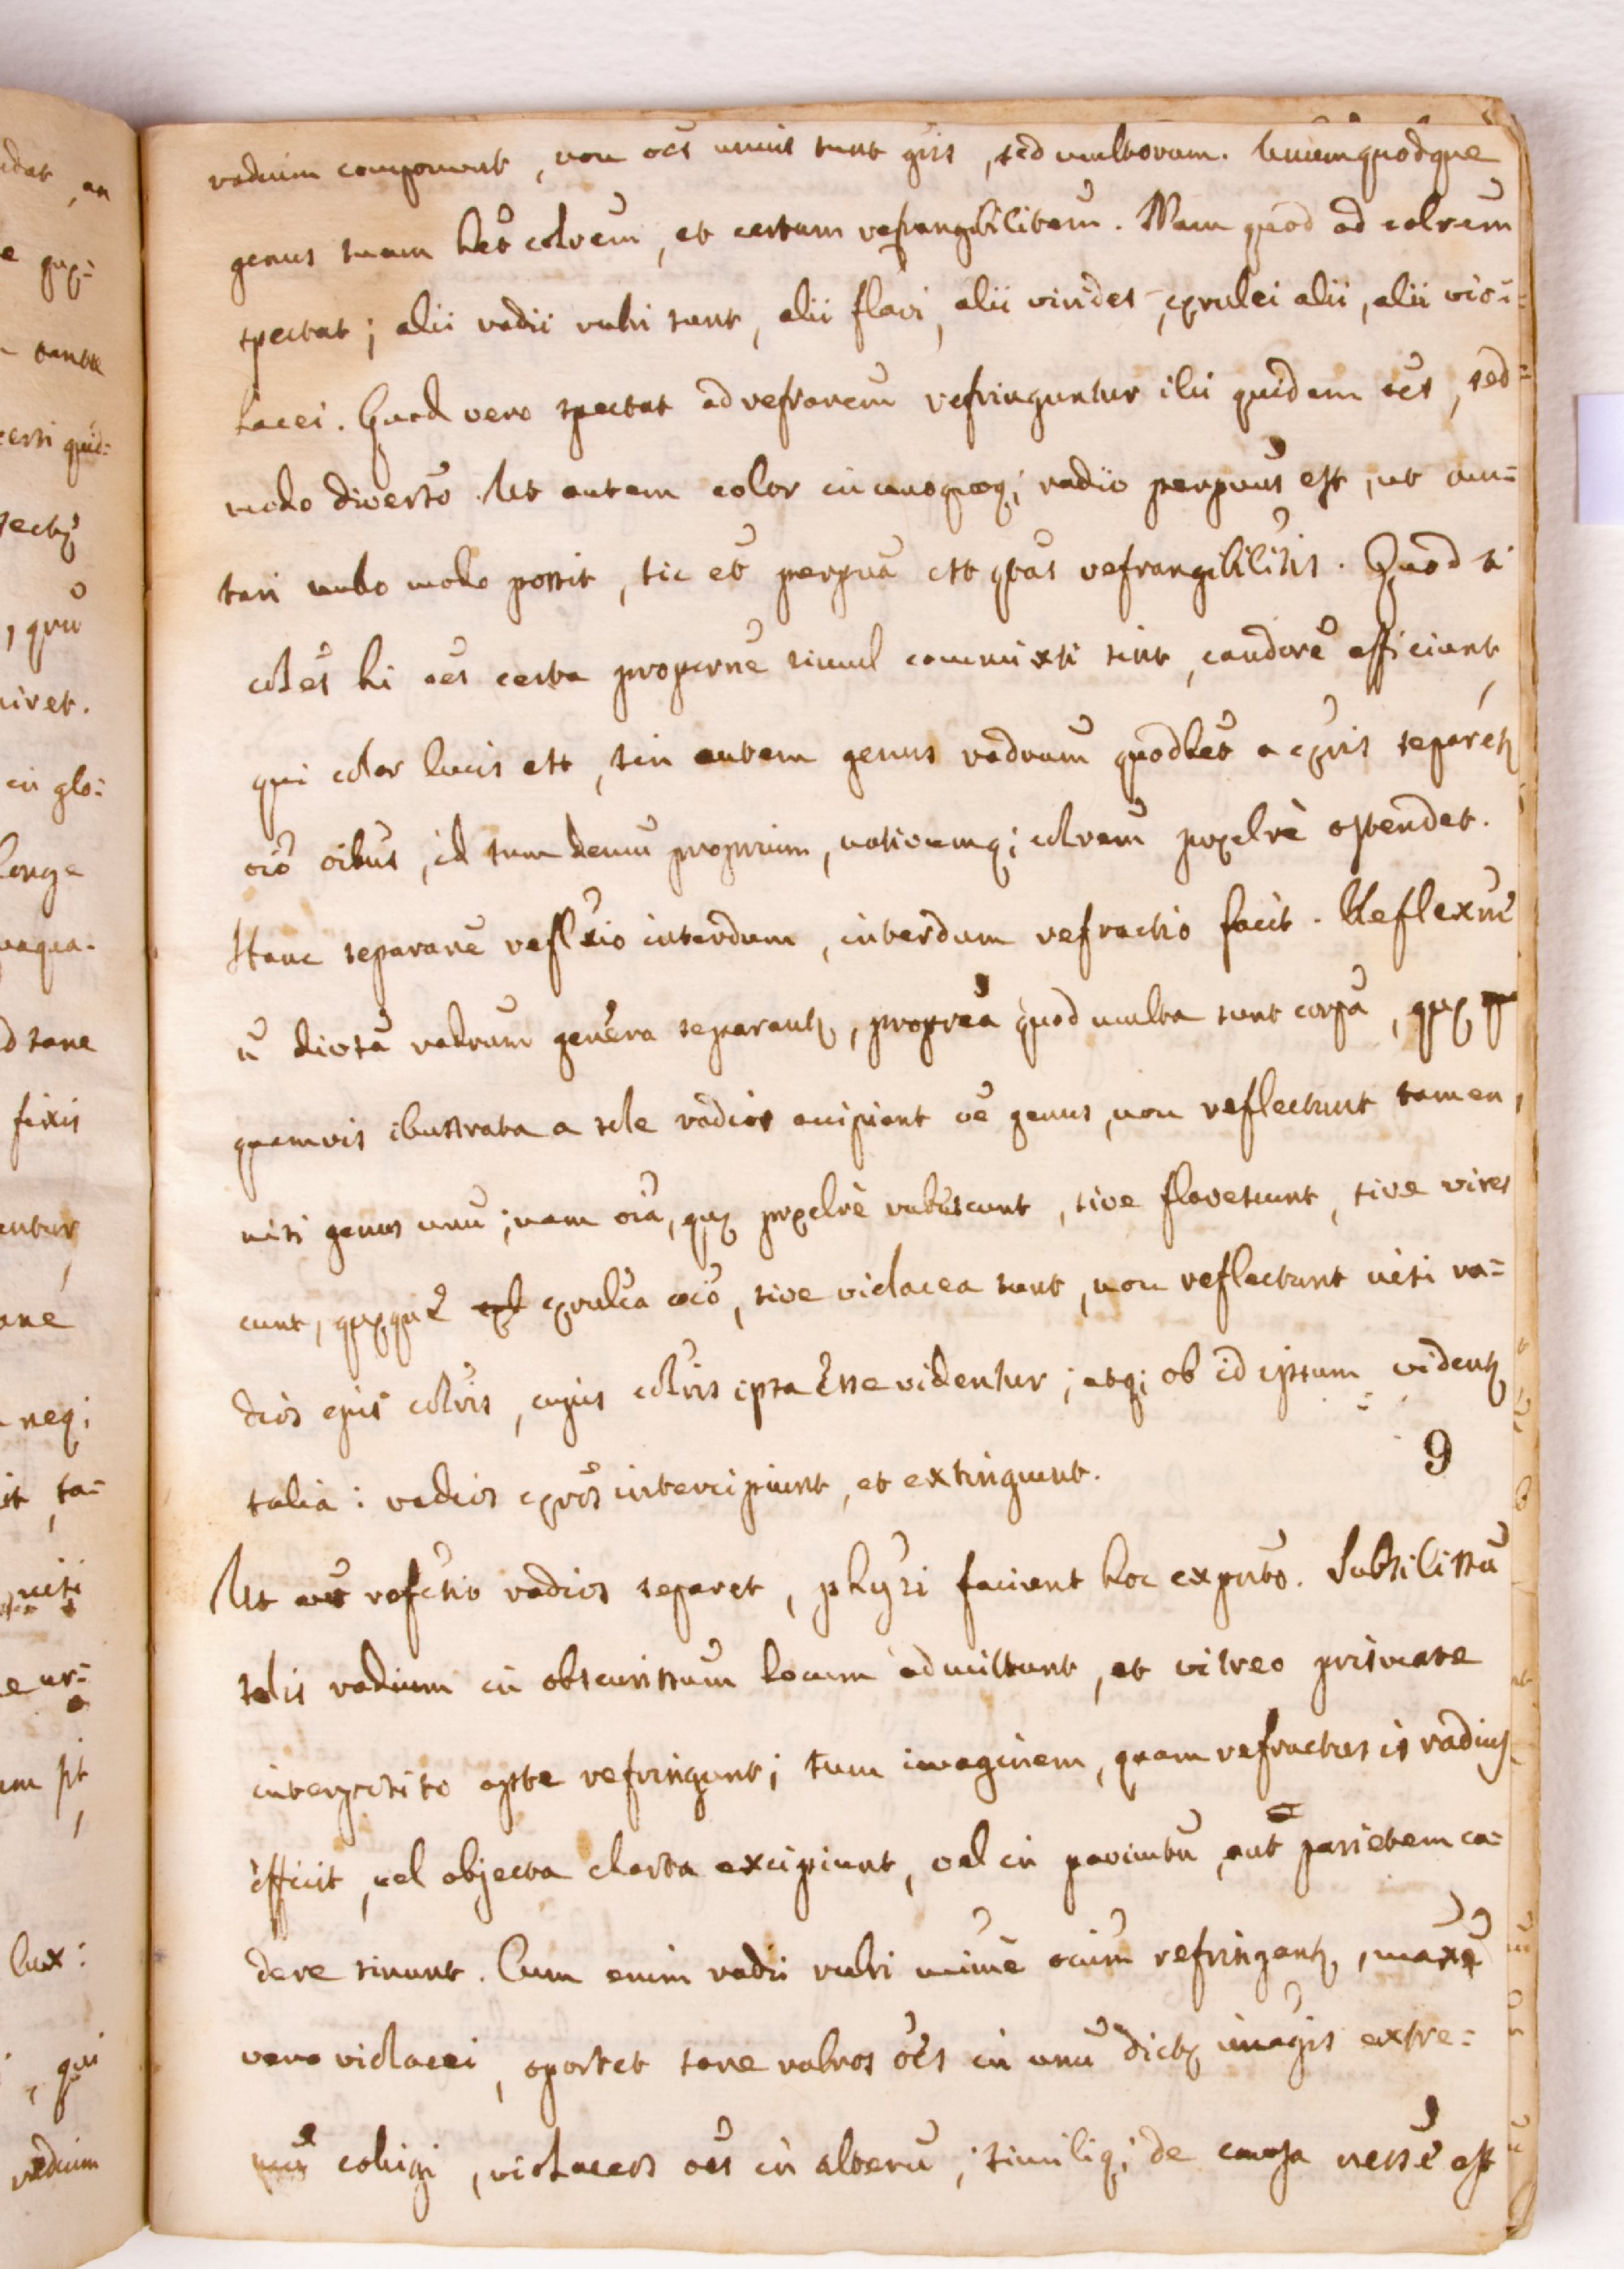 radium componunt, non oēs unius sunt gñis, sed multorum. Unumquodque
genus suam hēt colrem, et certam refrangibilitem. Nam quod ad colrem
spectat; alii radii rubri sunt, alii flavi, alii virides, cærulei alii, alii vio=
lacei. Quod vero spectat ad refrarem refringuntur illi quidem oēs, sed
modo diverso. Ut autem color in unoquoq; radio perpuus est, ut mu=
tari nullo modo possit, sic et perpua est qtas refrangibilitis. Quod si
colres hi oēs certa proporne simul commixti sint, candorē efficiunt,
qui color lucis est, sin autem genus radrum quodlet a cæris separetr
oiō oibus, id tum demū proprium, nativumq; colrem præclrè ostendet.
Hanc separanē reflxio interdum, interdum refractio facit. Reflexne
ū diversa radrum genera separantr, propterea quod multa sunt corpa, quæ
quamvis illustrata a sole radios accipiant oē genus, non reflectunt tamen,
nisi genus unū; nam oiā, quæ præclrè rubescunt, sive flavescunt, sive vires
cunt, quæque cærulea oiō, sive violacea sunt, non reflectunt nisi ra=
dios ejus colris, cujus colris ipsa esse videntur; atq; ob id ipsum videntr
talia: radios cæros intercipiunt, et extinguunt.
9
Ut refctio radios separet, physi faciunt hoc experto. Subtilissū
solis radium in obscurissum locum admittunt, et vitreo prismate
interposito apte refringunt; tum imaginem, quam refractus is radius
efficit, vel objecta charta excipiunt, vel in pavimtū, aut parietem ca=
dere sinunt. Cum enim radii rubri minimē oium refringantr, maxē
vero violacei, oportet sane rubros oēs in unū dictæ imagis extre=
mū colligi, violaceos oēs in alterū; similiq; de causa nessē est